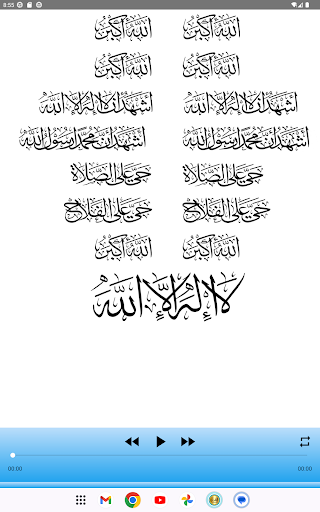 8:55
الله أكبر الله أكبر
الله أكبر الله أكبر
اشهد ان لا إله إلا الله اشهد ان لا إله إلا الله
اشهد ان محمدا رسول الله اشهد ان محمدا رسول الله
حي على الصلاة حي على الصلاة
حي على الفلاح حي على الفلاح
الله أكبر الله أكبر
لا إله إلا الله
00:00 00:00